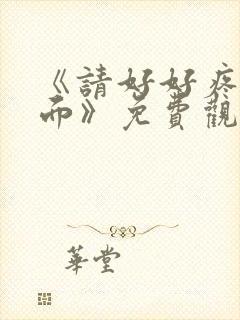 《請好好疼
而》免費觀
華堂